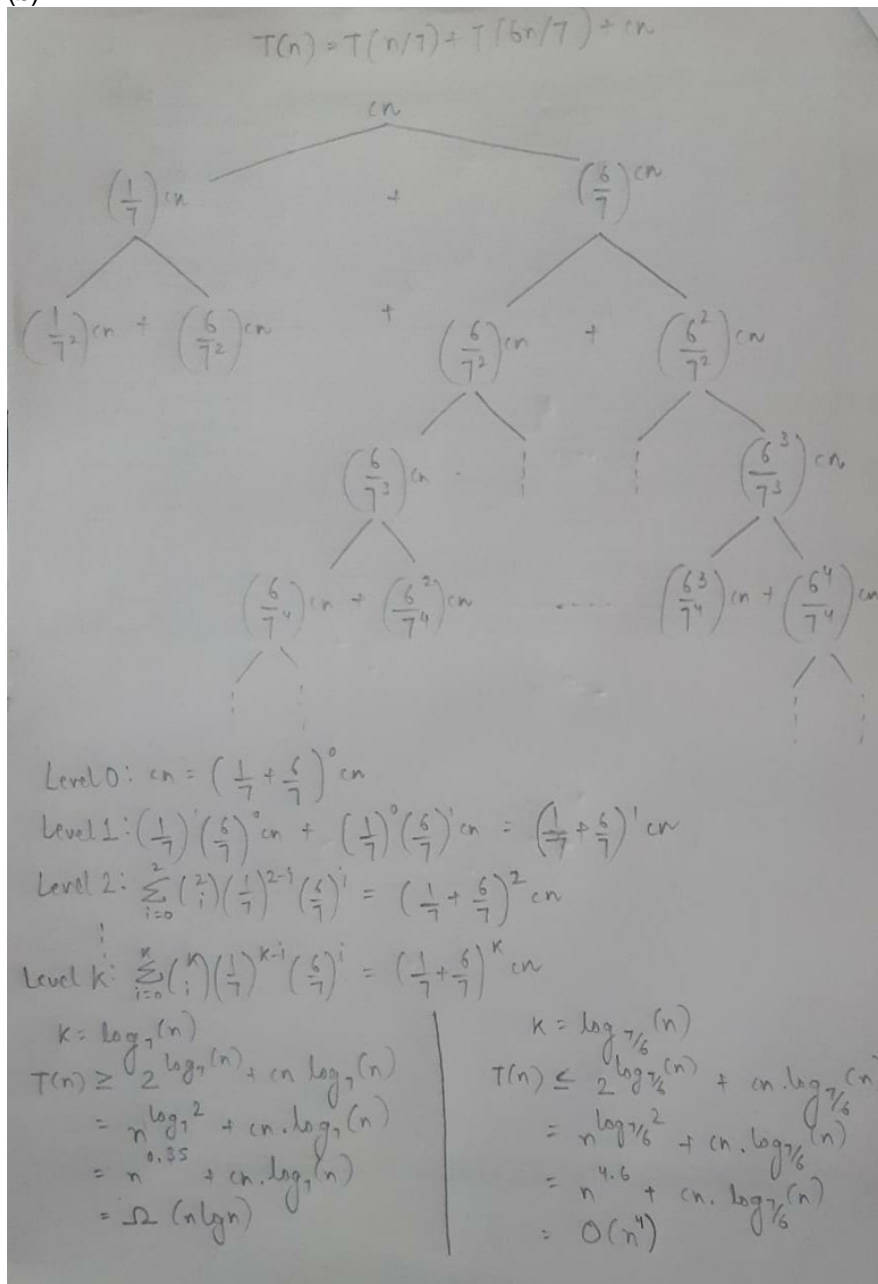 T(n) = T(n/7) + T(6n/7) + cn
cn
(1/7)cn + (6/7)cn
(1/7²)cn + (6/7²)cn + (6/7²)cn + (6²/7²)cn
(6/7³)cn (6³/7³)cn
(6/7⁴)cn + (6²/7⁴)cn ..... (6³/7⁴)cn + (6⁴/7⁴)cn
Level 0: cn = (1/7 + 6/7)⁰ cn
Level 1: (1/7)¹(6/7)⁰cn + (1/7)⁰(6/7)¹cn = (1/7 + 6/7)¹ cn
Level 2: Σ_{i=0}^{2} (2 i)(1/7)^{2-i}(6/7)^i = (1/7 + 6/7)² cn
⋮
Level k: Σ_{i=0}^{k} (k i)(1/7)^{k-i}(6/7)^i = (1/7 + 6/7)^k cn
k = log₇(n)
T(n) ≥ 2^{log₇(n)} + cn log₇(n)
= n^{log₇2} + cn.log₇(n)
= n^{0.35} + cn.log₇(n)
= Ω(nlgn)
k = log_{7/6}(n)
T(n) ≤ 2^{log_{7/6}(n)} + cn.log_{7/6}(n)
= n^{log_{7/6}2} + cn.log_{7/6}(n)
= n^{4.6} + cn.log_{7/6}(n)
= O(n⁴)